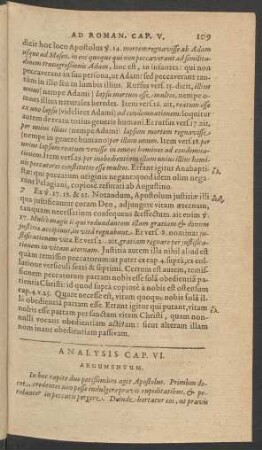 AD ROMAN. CAP. V. 109
dicit hoc loco Apostolus ℣. 14. mortem regnavisse ab Adam
usque ad Mosen, in eos quoque qui non peccaverant ad similitu-
dinem transgressionis Adam, hoc est, in infantes: qui non
peccaverant in sua persona, ut Adam: sed peccaverant tan-
tum in illo seu in lumbis illius. Rursus vers. 15. dicit, illius
unius (nempe Adami) lapsu mortuos esse, multos, nempe o-
mnes illius naturales heredes. Item vers. 16. ait, reatum esse
ex uno lapsu (videlicet Adami) ad condemnationem
extra dubium totius generis humani. Et rursus vers. 17. ait,
per unius illius (nempe Adami) lapsum mortem regnavisse,
nempe in genere humano per illum unum. Item vers. 18. per
unum lapsum reatum venisse in omnes homines ad condemna-
tionem. Item vers. 19. per inobedientiam illius unius homi-
nis peccatores constitutos esse multos. Errant igitur Anabapti-
stæ: qui peccatum originis negant: quod idem olim negan-
tes Pelagiani, copiose refutati ab Augustino.
7 Ex ℣. 17. 18. & 21. Notandum, Apostolum justitiæ il-
li qua justi sumus coram Deo, adjungere vitam æternam,
tanquam necessariam consequens & effectum. ait enim ℣.
17. Multo magis ii qui redundantem illam gratiam & donum
justitiæ accipiunt, in vita regnabunt. Et vers. 18. nominat ju-
stificationem vitæ. Et vers. 21. ait, gratiam regnare per justifica-
tionem in vitam æternam. Justitia autem illa nihil aliud est
quam remissio peccatorum: ut patet ex cap. 4. supra, ex col-
latione versuum 6. 7. & 8. Certum est autem, remissio-
nem peccatorum partam nobis esse sola obedientia pa-
tientis Christi: id quod supra copiose a nobis est ostensum
cap. 4. v. 25. Quare necesse est, vitam quoque nobis sola il-
la obedientia partam esse. Errant igitur qui putant, vitam
nobis esse partam per sanctam vitam Christi, quam non-
nulli vocant obedientiam activam: secus alteram illam
nominant obedientiam passivam.
ANALYSIS CAP. VI.
ARGUMENTUM.
In hoc capite duo potissimum agit Apostolus. Primùm do-
cet, credentes non posse indulgere pravis cupiditatibus, &
in peccatis pergere. Deinde, hortatur eos, ut pravis